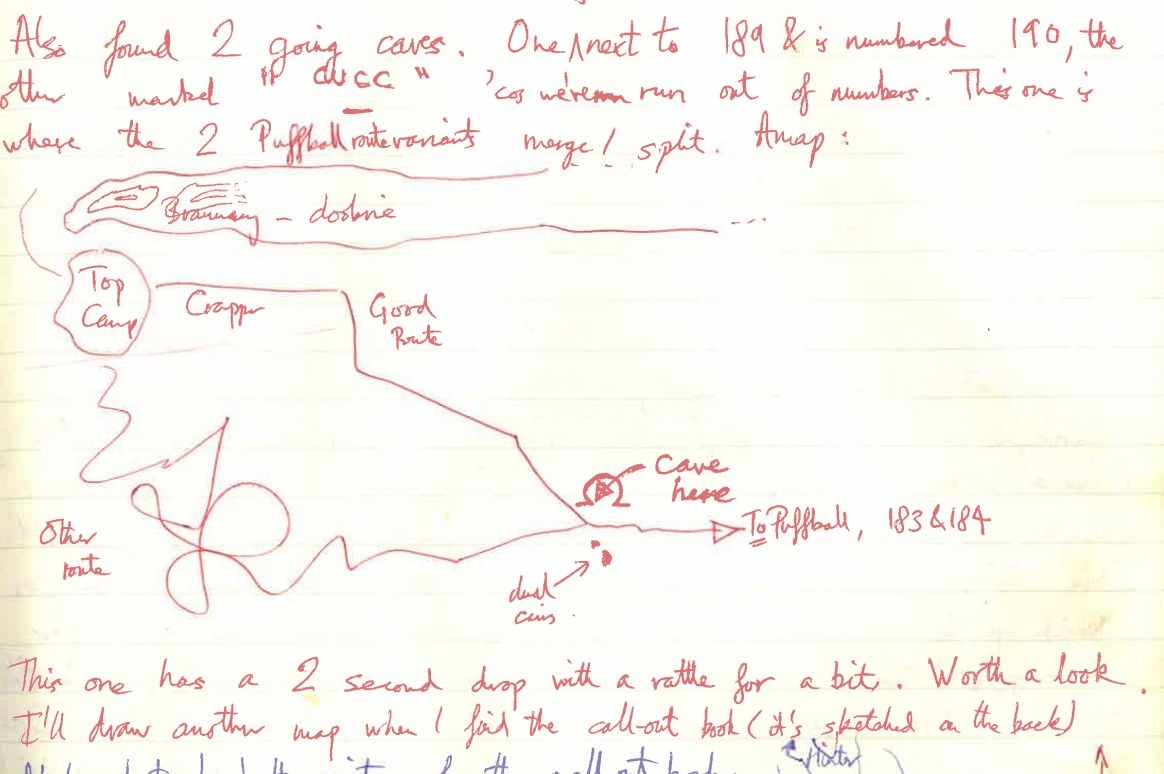 Also found 2 going caves. One ∧ next to 189 & is numbered 190, the
other marked " CUCC " 'cos we're run out of numbers. This one is
where the 2 Puffball route variants merge / split. A map:
Top
Camp
Crapper
Good
Route
Cave
here
To Puffball, 183 & 184
Other
route
dual
This one has a 2 second drop with a rattle for a bit. Worth a look.
I'll draw another map when I find the call-out book (it's sketched on the back)